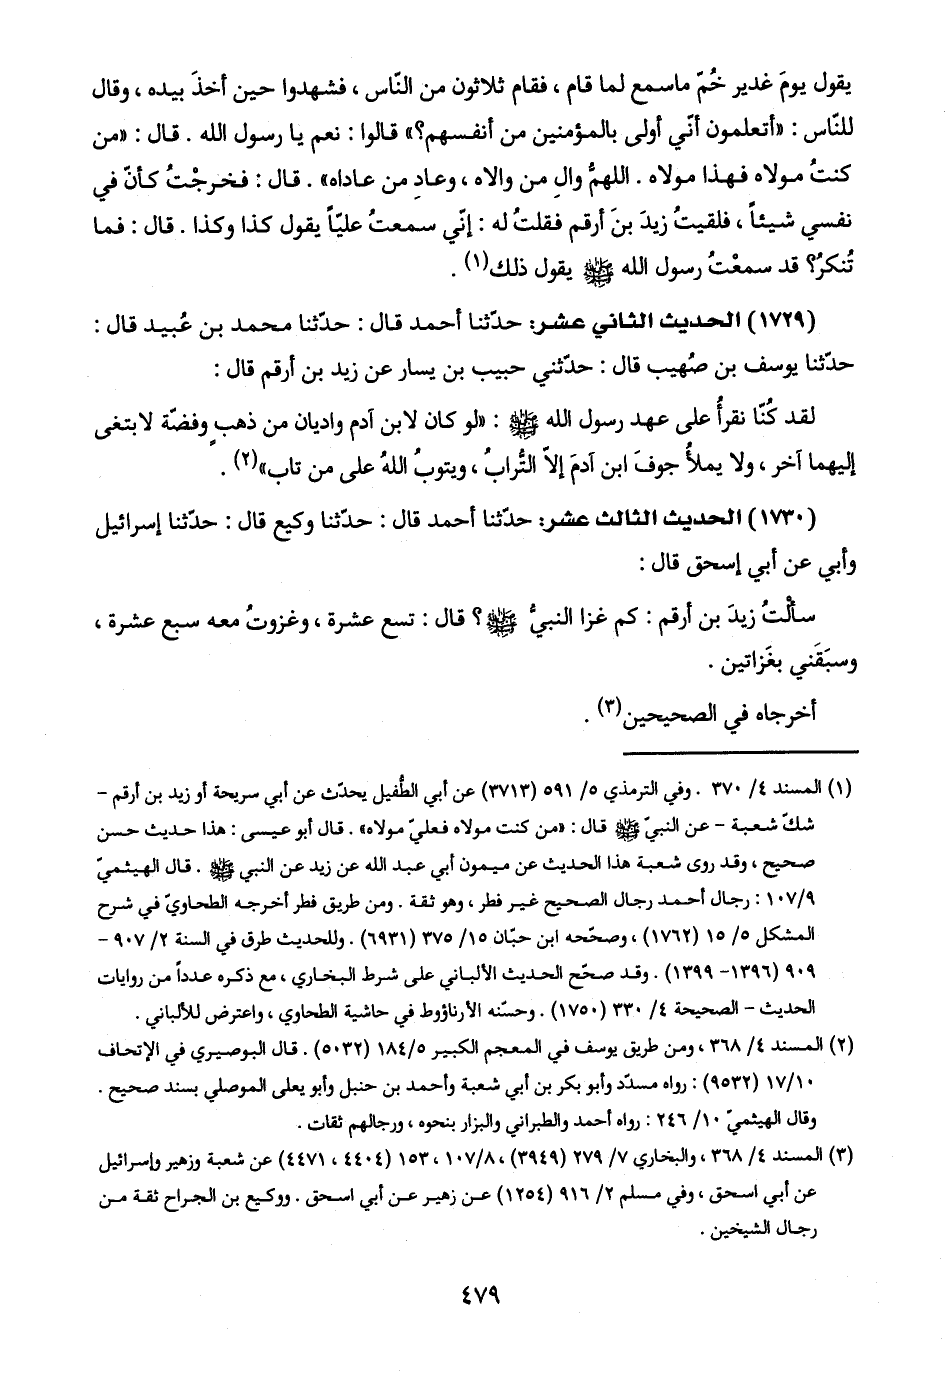 يقول يومَ غدير خُمّ ماسمع لما قام ، فقام ثلاثون من النّاس ، فشهدوا حين أخذَ بيده ، وقال
للنّاس : «أتعلمون أنّي أولى بالمؤمنين من أنفسهم؟» قالوا : نعم يا رسول الله . قال : «من
كنتُ مولاه فهذا مولاه . اللهمُّ والِ من والاه ، وعادِ من عاداه» . قال : فخرجْتُ كأنّ في
نفسي شيئاً ، فلقيتُ زيدَ بنَ أرقم فقلتُ له : إنّي سمعتُ عليّاً يقول كذا وكذا . قال : فما
تُنكرُ؟ قد سمعْتُ رسول الله ﷺ يقول ذلك(١) .
(١٧٢٩) الحديث الثاني عشر: حدّثنا أحمد قال : حدّثنا محمد بن عُبيد قال :
حدّثنا يوسف بن صُهيب قال : حدّثني حبيب بن يسار عن زيد بن أرقم قال :
لقد كُنّا نقرأُ على عهد رسول الله ﷺ : «لو كان لابن آدم واديان من ذهبٍ وفضّة لابتغى
إليهما آخر ، ولا يملأُ جوفَ ابن آدمَ إلاّ التُّرابُ ، ويتوبُ اللهُ على من تاب»(٢) .
(١٧٣٠) الحديث الثالث عشر: حدّثنا أحمد قال : حدّثنا وكيع قال : حدّثنا إسرائيل
وأبي عن أبي إسحق قال :
سألْتُ زيدَ بن أرقم : كم غزا النبيُّ ﷺ ؟ قال : تسع عشرة ، وغزوتُ معه سبع عشرة ،
وسبَقَني بغَزاتين .
أخرجاه في الصحيحين(٣) .
(١) المسند ٤/ ٣٧٠ . وفي الترمذي ٥/ ٥٩١ (٣٧١٣) عن أبي الطُّفيل يحدّث عن أبي سريحة أو زيد بن أرقم –
شكّ شعبة – عن النبيّ ﷺ قال : «من كنت مولاه فعليّ مولاه» . قال أبو عيسى : هذا حديث حسن
صحيح ، وقد روى شعبة هذا الحديث عن ميمون أبي عبد الله عن زيد عن النبي ﷺ . قال الهيثميّ
١٠٧/٩ : رجال أحمد رجال الصحيح غير فطر ، وهو ثقة . ومن طريق فطر أخرجه الطحاويّ في شرح
المشكل ٥/ ١٥ (١٧٦٢) ، وصحّحه ابن حبّان ١٥/ ٣٧٥ (٦٩٣١) . وللحديث طرق في السنة ٢/ ٩٠٧ –
٩٠٩ (١٣٩٦– ١٣٩٩) . وقد صحّح الحديث الألباني على شرط البخاري ، مع ذكره عدداً من روايات
الحديث – الصحيحة ٤/ ٣٣٠ (١٧٥٠) . وحسّنه الأرناؤوط في حاشية الطحاوي ، واعترض للألباني .
(٢) المسند ٤/ ٣٦٨ ، ومن طريق يوسف في المعجم الكبير ١٨٤/٥ (٥٠٣٢) . قال البوصيري في الإتحاف
١٧/١٠ (٩٥٣٢) : رواه مسدّد وأبو بكر بن أبي شعبة وأحمد بن حنبل وأبو يعلى الموصلي بسند صحيح .
وقال الهيثميّ ١٠/ ٢٤٦ : رواه أحمد والطبراني والبزار بنحوه ، ورجالهم ثقات .
(٣) المسند ٤/ ٣٦٨ ، والبخاري ٧/ ٢٧٩ (٣٩٤٩) ، ١٠٧/٨ ، ١٥٣ (٤٤٠٤ ، ٤٤٧١) عن شعبة وزهير وإسرائيل
عن أبي اسحق ، وفي مسلم ٢/ ٩١٦ (١٢٥٤) عن زهير عن أبي اسحق . ووكيع بن الجراح ثقة من
رجال الشيخين .
٤٧٩